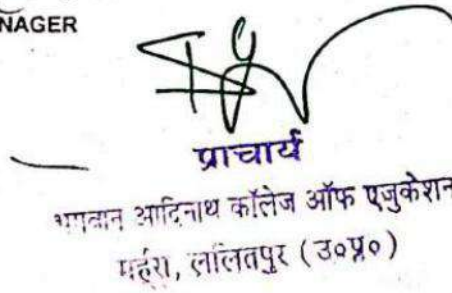 NAGER
प्राचार्य
भगवान आदिनाथ कॉलेज ऑफ एजुकेशन
महर्रा, ललितपुर (उ०प्र०)